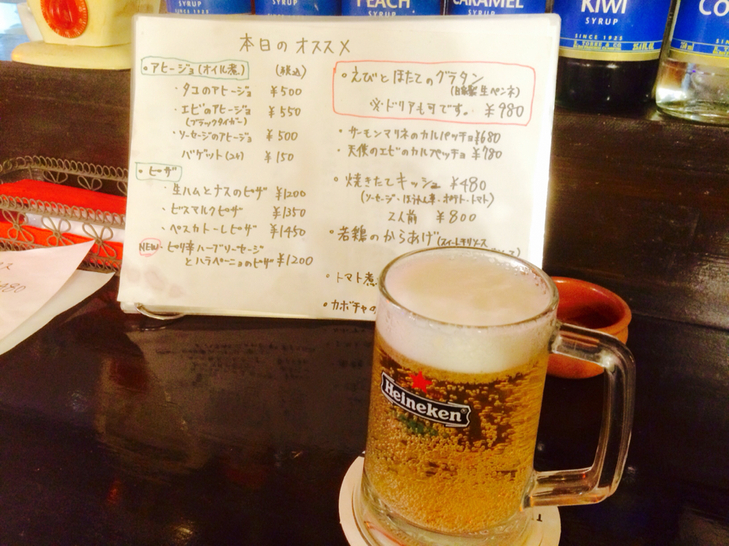 PEACH
SYRUP
CARAMEL
SYRUP
KIWI
SYRUP
SINCE 1923
CO
本日のオススメ
・アヒージョ(オイル煮) (税込)
・タコのアヒージョ ¥500
・エビのアヒージョ ¥550
(ブラックタイガー)
・ソーセージのアヒージョ ¥500
バゲット(2コ) ¥150
・ピザ
・生ハムとナスのピザ ¥1200
・ビスマルクピザ ¥1350
・ペスカトーレピザ ¥1450
NEW・ピリ辛ハーブソーセージ
とハラペーニョのピザ ¥1200
・えびとほたてのグラタン
(自家製生ペンネ)
※ドリアも可です。 ¥980
・サーモンマリネのカルパッチョ ¥680
・天使のエビのカルパッチョ ¥780
・焼きたてキッシュ ¥480
(ソーセージ・ほうれん草・ポテト・トマト)
2人前 ¥800
・若鶏のからあげ
トマト煮
・カボチャの
Heineken